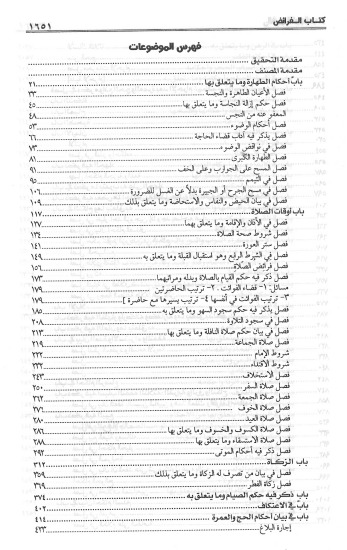 كتاب الفرائض ١٦٥١
فهرس الموضوعات
مقدمة التحقيق
مقدمة المصنف
باب أحكام الطهارة وما يتعلق بها ٢١
فصل الأعيان الطاهرة والنجسة ٣٣
فصل حكم إزالة النجاسة وما يتعلق بها ٤٥
المعفو عنه من النجس ٤٨
فصل أحكام الوضوء ٥٣
فصل يذكر فيه آداب قضاء الحاجة ٦٦
فصل في نواقض الوضوء ٧٣
فصل الطهارة الكبرى ٨١
فصل المسح على الجوارب وعلى الخف ٩١
فصل في التيمم ٩٥
فصل في مسح الجرح أو الجبيرة بدلاً عن الغسل للضرورة ١٠٦
فصل في بيان الحيض والنفاس والاستحاضة وما يتعلق بذلك ١٠٩
باب أوقات الصلاة ١١٧
فصل في الأذان والإقامة وما يتعلق بهما ١٢٧
فصل شروط صحة الصلاة ١٣٤
فصل ستر العورة ١٤١
فصل في الشرط الرابع وهو استقبال القبلة وما يتعلق به ١٥٠
فصل فرائض الصلاة ١٥٦
فصل ذكر فيه حكم القيام بالصلاة وبدله ومراتبهما ١٧٣
مسائل: ١- قضاء الفوائت. ٢- ترتيب الحاضرتين ١٧٩
٣- ترتيب الفوائت في أنفسها ٤- ترتيب يسيرها مع حاضرة ] ١٧٩
فصل يذكر فيه حكم سجود السهو وما يتعلق به ١٨٥
فصل في سجود التلاوة ٢٠٨
فصل في بيان حكم صلاة النافلة وما يتعلق بها ٢١٣
فصل صلاة الجماعة ٢١٩
شروط الإمام ٢٢٢
شروط الاقتداء ٢٣٢
فصل الاستخلاف ٢٤٣
فصل صلاة السفر ٢٥٠
فصل صلاة الجمعة ٢٦٢
فصل صلاة الخوف ٢٧٦
فصل صلاة العيد ٢٨٠
فصل صلاة الكسوف والخسوف وما يتعلق بها ٢٨٦
فصل صلاة الاستسقاء وما يتعلق بها ٢٨٨
فصل ذكر فيه أحكام الموتى ٢٩٢
باب الزكاة ٣١٢
فصل في بيان من تصرف له الزكاة وما يتعلق بذلك ٣٥٩
فصل زكاة الفطر ٣٦٩
باب ذكر فيه حكم الصيام وما يتعلق به ٣٧٤
باب في الاعتكاف ٤٠٢
باب في بيان أحكام الحج والعمرة ٤١٤
إجارة البلاغ ٤٣٣